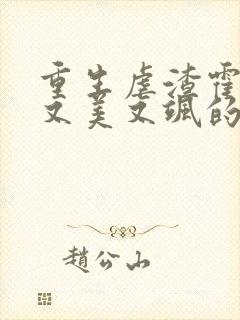 重生虐渣霍
又美又飒的
趙公山